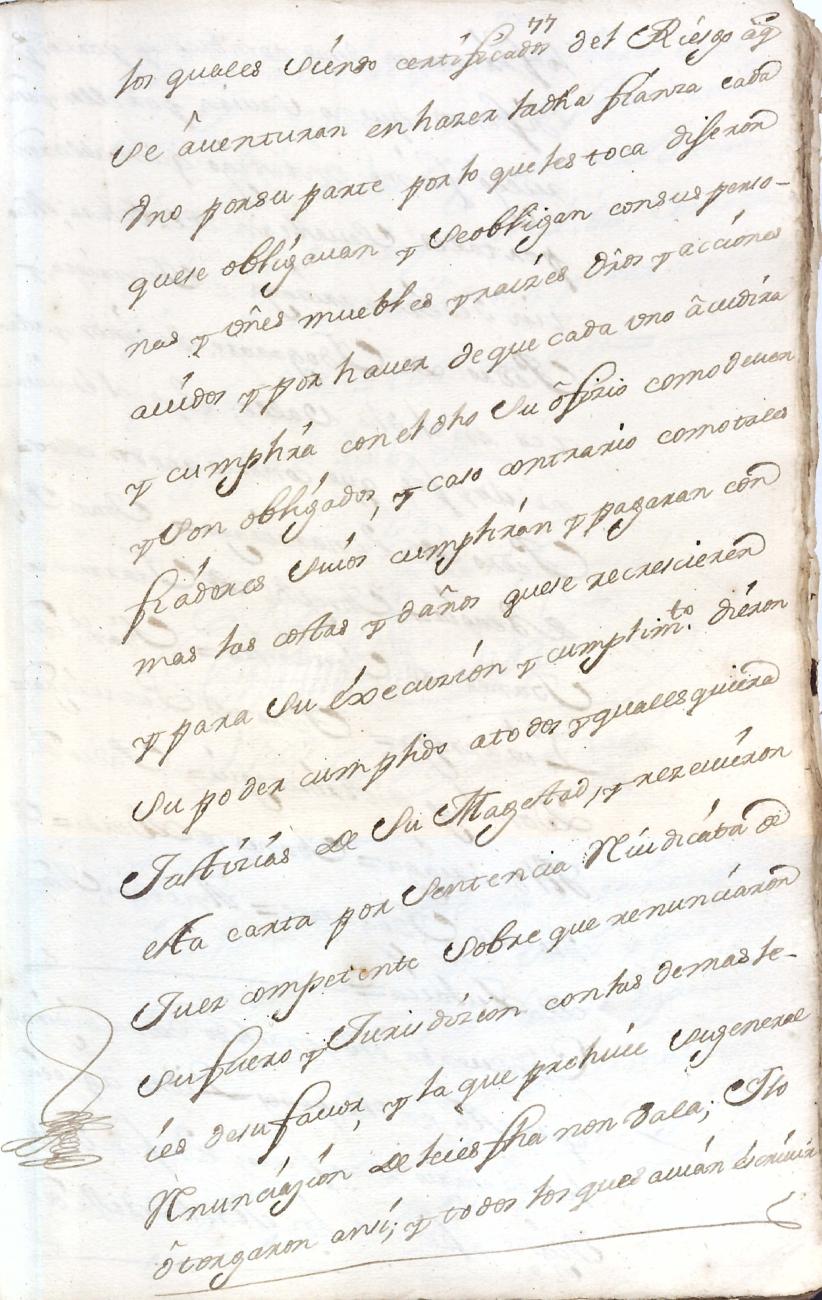 77
los quales siendo certificados del Riesgo aq̃
se aventuran en hazer la dha fianza cada
Vno por su parte por lo que les toca dijeron
que se obligavan y se obligan con sus perso-
nas y vñes muebles y raizes dros y acciones
avidos y por haver de que cada vno acudira
y cumplira con el dho su ofizio como deven
y son obligados, y caso contrario como tales
fiadores suios cumpliran y pagaran con
mas las costas y daños que se recrescieren
y para su execuzion y cumplimto. dieron
su poder cumplido a todos y qualesquiera
Justizias de Su Magestad, y rezevieron
esta carta por sentencia Niudicata de
Juez competente sobre que renunciaron
su fuero y Jurisdizion con las demas le-
ies de su favor, y la que prohive su general
Rnunciazion de leies fha non vala; Y lo
otorgaron ansi; y todos los que savian escrivir